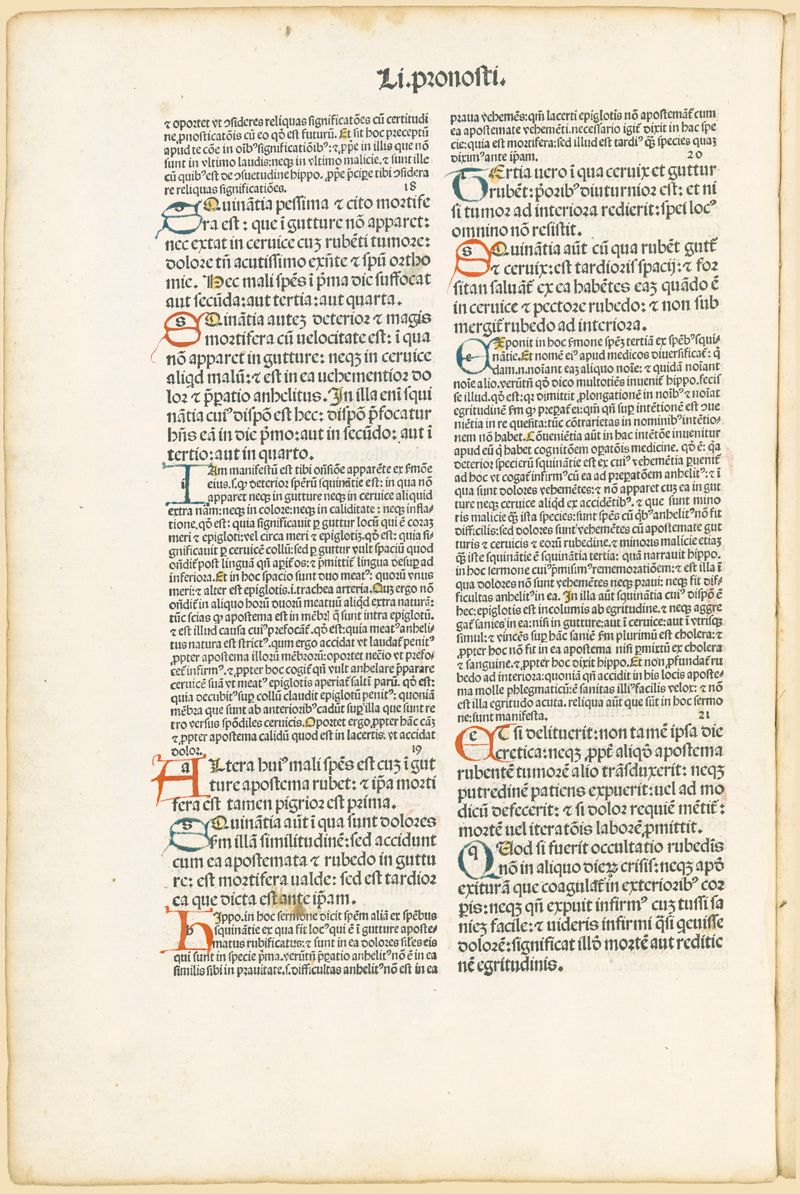 Li.pronosti.
⁊ oportet vt ↄsideres reliquas significatōes cū certitudi
ne ꝓnosticatōis cū eo qd̄ est futurū. Et sit hoc preceptū
apud te cōe in oībꝰ significatiōibꝰ: ⁊ ꝓpe in illis que nō
sunt in vltimo laudis: neqꝫ in vltimo malicie. ⁊ sunt ille
cū quibꝰ est de ↄsuetudine hippo. ꝓpe p̄cipe tibi ↄsidera
re reliquas significatiōes. 18
SQuinātia pessima ⁊ cito mortife
ra est: que ī gutture nō apparet:
nec extat in ceruice cuꝫ rubēti tumore:
dolore tn̄ acutissimo exn̄te ⁊ spū ortho
mie. Hec mali spēs ī p̄ma die suffocat
aut secūda: aut tertia: aut quarta.
SQinātia auteꝫ deterior ⁊ magis
mortifera cū uelocitate est: ī qua
nō apparet in gutture: neqꝫ in ceruice
aliqd malū: ⁊ est in ea uehementior do
lor ⁊ p̄patio anhelitus. In illa eni squi
nātia cuiꝰ dispō est hec: dispō p̄focatur
hn̄s eā in die p̄mo: aut in secūdo: aut ī
tertio: aut in quarto.
IAm manifestū est tibi on̄siōe apparēte ex smōe
eius.s.ꝙ deterior spērū squinātie est: in qua nō
apparet neqꝫ in gutture neqꝫ in ceruice aliquid
extra nām: neqꝫ in colore: neqꝫ in caliditate: neqꝫ infla-
tione. qd̄ est: quia significauit ꝑ guttur locū qui ē corāꝫ
meri ⁊ epigloti: vel circa meri ⁊ epiglotiꝫ. qd̄ est: quia si-
gnificauit ꝑ ceruicē collū: sed ꝑ guttur vult spaciū quod
on̄dit̄ post linguā qn̄ apit̄ os: ⁊ p̄mittit̄ lingua desuꝑ ad
inferiora. Et in hoc spacio sunt duo meatꝰ: quorū vnus
meri: ⁊ alter est epiglotis.i.trachea arteria. Cuꝫ ergo nō
on̄dit̄ in aliquo horū duorū meatuū aliqd extra naturā:
tūc scias ꝙ apostema est in mēbrꝭ q̄ sunt intra epiglotū.
⁊ est illud causa cuiꝰ prefocat̄. qd̄ est: quia meatꝰ anheli-
tus natura est strictꝰ. qum ergo accidat vt laudat̄ penitꝰ
ꝓpter apostema illorū mēbrorū: oportet nec̄io vt prefo-
cet̄ infirmꝰ. ⁊ ꝓpter hoc cogit̄ qn̄ vult anhelare p̄parare
ceruicē suā vt meatꝰ epiglotis aperiat̄ salti parū. qd̄ est:
quia decubitꝰ suꝑ collū claudit epiglotū penitꝰ: quoniā
mēbra que sunt ab anterioribꝰ cadūt suꝑ illa que sunt re
tro versus spōdiles ceruicis. Oportet ergo ꝓpter hāc cāꝫ
⁊ ꝓpter apostema calidū quod est in lacertis. vt accidat
dolor. 19
ALtera huiꝰ mali spēs est cuꝫ ī gut
ture apostema rubet: ⁊ ip̄a morti
fera est tamen pigrior est prima.
SQuinātia aūt ī qua sunt dolores
sm̄ illā similitudinē: sed accidunt
cum ea apostemata ⁊ rubedo in guttu
re: est mortifera ualde: sed est tardior
ea que dicta est ante ip̄am.
HIppo. in hoc sermone dicit spēm aliā ex spēbus
squinātie ex qua fit locꝰ qui ē ī gutture aposte-
matus rubificatus: ⁊ sunt in ea dolores siles eis
qui sunt in specie p̄ma. verūtn̄ p̄patio anhelitꝰ nō ē in ea
similis sibi in prauitate.s.difficultas anhelitꝰ nō est in ea
praua vehemēs: qm̄ lacerti epiglotis nō apostemāt̄ cum
ea apostemate vehemēti. necessario igit̄ dixit in hac spe
cie: quia est mortifera: sed illud est tardiꝰ qꝫ̄ species quaꝫ
diximꝰ ante ip̄am. 20
TErtia uero ī qua ceruix et guttur
rubēt: p̄oribꝰ diuturnior est: et ni
si tumor ad interiora redierit: spei locꝰ
omnino nō resistit.
SQuinātia aūt cū qua rubēt gutt̄
⁊ ceruix: est tardioris spacij: ⁊ for
sitan saluāt̄ ex ea habētes eaꝫ quādo ē
in ceruice ⁊ pectore rubedo: ⁊ non sub
mergit̄ rubedo ad interiora.
EXponit in hoc smone spēꝫ tertiā ex spēbꝰ squi-
nātie. Et nomē eiꝰ apud medicos diuersificat̄: q̄
dam.n.noīant eaꝫ aliquo noīe: ⁊ quidā noīant
noīe alio. verūtn̄ qd̄ dico multotiēs inuenit̄ hippo. fecis
se illud. qd̄ est: qꝛ dimittit ꝓlongationē in noībꝰ ⁊ noīat
egritudinē sm̄ ꝙ preꝑat̄ ei: qm̄ qn̄ suꝑ intētionē est ↄue
niētia in re quesita: tūc cōtrarietas in nominibꝰ intētio-
nem nō habet. Cōueniētia aūt in hac intētōe inuenitur
apud eū q̄ habet cognitōem oꝑatōis medicine. qd̄ ē: q̄a
deterior specierū squinātie est ex cuiꝰ vehemētia ꝑuenit̄
ad hoc vt cogat̄ infirmꝰ cū ea ad preꝑatōem anhelitꝰ: ⁊ ī
qua sunt dolores vehemētes: ⁊ nō apparet cuꝫ ea in gut
ture neqꝫ ceruice aliqd ex accidētibꝰ. ⁊ que sunt mino
ris malicie qꝫ̄ ista species: sunt spēs cū qbꝰ anhelitꝰ nō fit
difficilis: sed dolores sunt vehemētes cū apostemate gut
turis ⁊ ceruicis ⁊ eorū rubedine. ⁊ minoris malicie etiaꝫ
qꝫ̄ iste squinātie ē squinātia tertia: quā narrauit hippo.
in hoc sermone cuiꝰ p̄misimꝰ rememorationēm: ⁊ est illa ī
qua dolores nō sunt vehemētes neqꝫ praui: neqꝫ fit dif-
ficultas anhelitꝰ in ea. In illa aūt squinātia cuiꝰ dispō ē
hec: epiglotis est incolumis ab egritudine. ⁊ neqꝫ aggre
gat̄ sanies in ea: nisi in gutture: aut ī ceruice: aut ī vtrisqꝫ
simul: ⁊ vincēs suꝑ hāc saniē sm̄ plurimū est cholera: ⁊
ꝓpter hoc nō fit in ea apostema nisi ꝑmixtū ex cholera
⁊ sanguine. ⁊ ꝓpter hoc dixit hippo. Et non ꝓfundat̄ ru
bedo ad interiora: quoniā qn̄ accidit in his locis aposte-
ma molle phlegmaticū: ē sanitas illiꝰ facilis velox: ⁊ nō
est illa egritudo acuta. reliqua aūt que sūt in hoc sermo
ne: sunt manifesta. 21
ET si delituerit: non tamē ipsa die
cretica: neqꝫ ꝓpt̄ aliqd̄ apostema
rubentē tumorē alio trāsduxerit: neqꝫ
putredinē patiens expuerit: uel ad mo
dicū defecerit: ⁊ si dolor requiē mētit̄:
mortē uel iteratōis laborē ꝓmittit.
QUod si fuerit occultatio rubedis
nō in aliquo dieꝝ crisis: neqꝫ apd̄
exiturā que coagulat̄ in exterioribꝰ cor
ꝑis: neqꝫ qn̄ expuit infirmꝰ cuꝫ tussi sa
nieꝫ facile: ⁊ uideris infirmi q̄si qeuisse
dolorē: significat illd̄ mortē aut reditio
nē egritudinis.